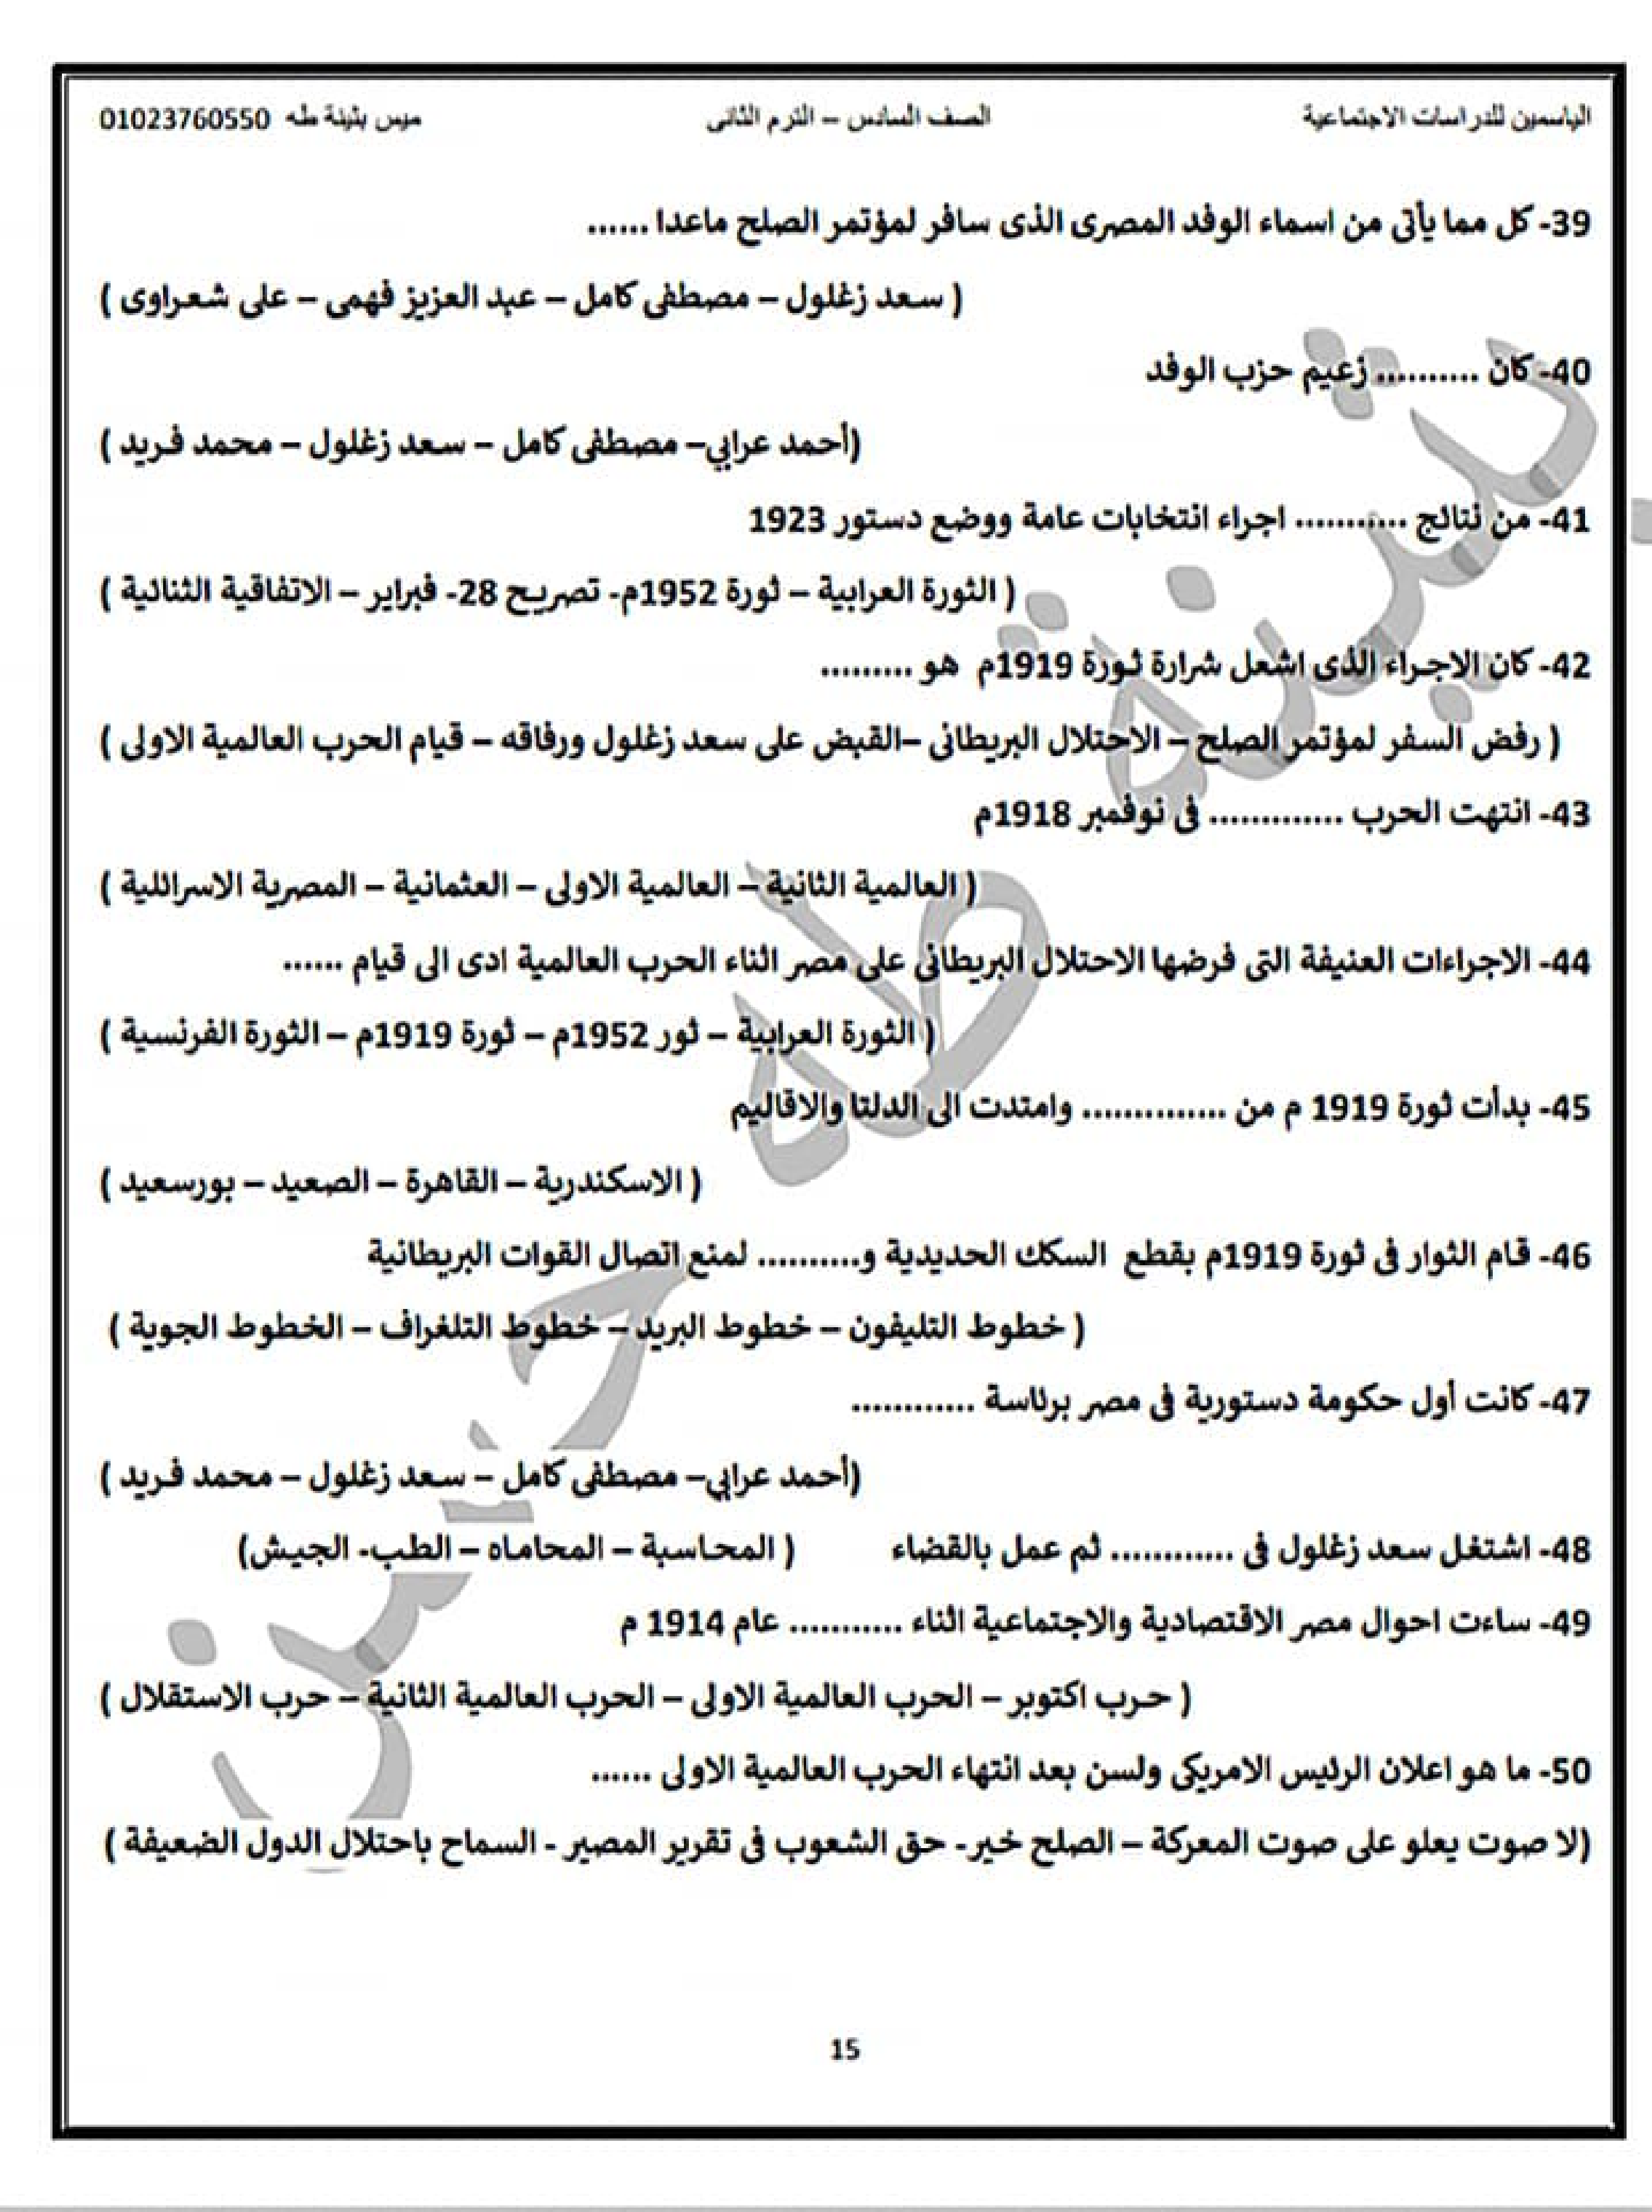 الياسمين للدراسات الاجتماعية الصف السادس – الترم الثانى ميس بثينة طه 01023760550
39- كل مما يأتى من اسماء الوفد المصرى الذى سافر لمؤتمر الصلح ماعدا ......
( سعد زغلول – مصطفى كامل – عبد العزيز فهمى – على شعراوى )
40- كان .......... زعيم حزب الوفد
(أحمد عرابي– مصطفى كامل – سعد زغلول – محمد فريد )
41- من نتائج ........... اجراء انتخابات عامة ووضع دستور 1923
( الثورة العرابية – ثورة 1952م- تصريح 28- فبراير – الاتفاقية الثنائية )
42- كان الاجراء الذى اشعل شرارة ثورة 1919م هو .........
( رفض السفر لمؤتمر الصلح – الاحتلال البريطانى –القبض على سعد زغلول ورفاقه – قيام الحرب العالمية الاولى )
43- انتهت الحرب ............. فى نوفمبر 1918م
( العالمية الثانية – العالمية الاولى – العثمانية – المصرية الاسرائلية )
44- الاجراءات العنيفة التى فرضها الاحتلال البريطانى على مصر اثناء الحرب العالمية ادى الى قيام ......
( الثورة العرابية – ثور 1952م – ثورة 1919م – الثورة الفرنسية )
45- بدأت ثورة 1919 م من .............. وامتدت الى الدلتا والاقاليم
( الاسكندرية – القاهرة – الصعيد – بورسعيد )
46- قام الثوار فى ثورة 1919م بقطع السكك الحديدية و.......... لمنع اتصال القوات البريطانية
( خطوط التليفون – خطوط البريد – خطوط التلغراف – الخطوط الجوية )
47- كانت أول حكومة دستورية فى مصر برئاسة ............
(أحمد عرابي– مصطفى كامل – سعد زغلول – محمد فريد )
48- اشتغل سعد زغلول فى ............ ثم عمل بالقضاء ( المحاسبة – المحاماه – الطب- الجيش)
49- ساءت احوال مصر الاقتصادية والاجتماعية اثناء ........... عام 1914 م
( حرب اكتوبر – الحرب العالمية الاولى – الحرب العالمية الثانية – حرب الاستقلال )
50- ما هو اعلان الرئيس الامريكى ولسن بعد انتهاء الحرب العالمية الاولى ......
(لا صوت يعلو على صوت المعركة – الصلح خير- حق الشعوب فى تقرير المصير - السماح باحتلال الدول الضعيفة )
15